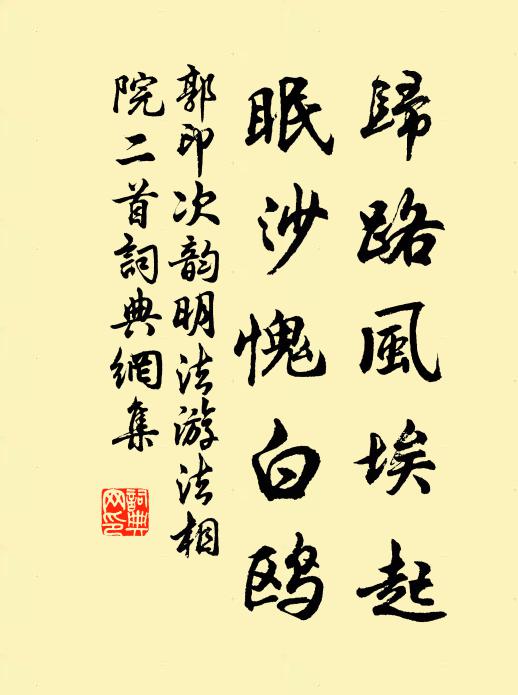 歸路風埃起
眠沙愧白鸥
郭印次韵明法游法相
院二首詞典網集
詞典
网印